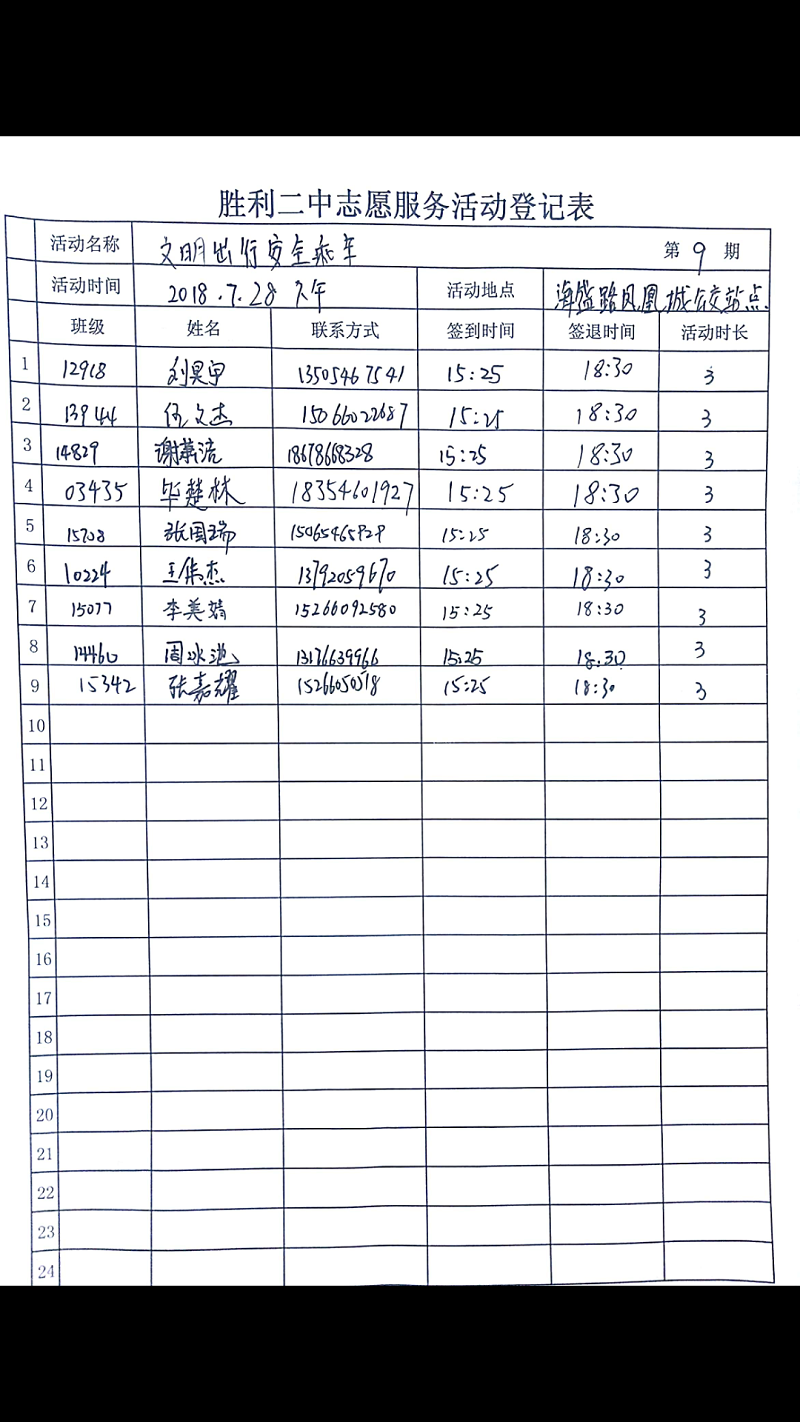 胜利二中志愿服务活动登记表
活动名称 文明出行安全乘车 第 9 期
活动时间 2018.7.28 下午 活动地点 海盛路凤凰城公交站点
班级 姓名 联系方式 签到时间 签退时间 活动时长
1 12918 刘昊甲 13505467541 15:25 18:30 3
2 13944 伍文杰 15066022687 15:25 18:30 3
3 14829 谢慕洁 18678668328 15:25 18:30 3
4 03435 毕楚林 18354601927 15:25 18:30 3
5 张国瑞 15:25 18:30 3
6 10224 王隽杰 13792059670 15:25 18:30 3
7 15077 李美婧 15266092580 15:25 18:30 3
8 14460 周冰池 13176639966 15:25 18:30 3
9 15342 张嘉耀 15:25 18:30 3
10
11
12
13
14
15
16
17
18
19
20
21
22
23
24